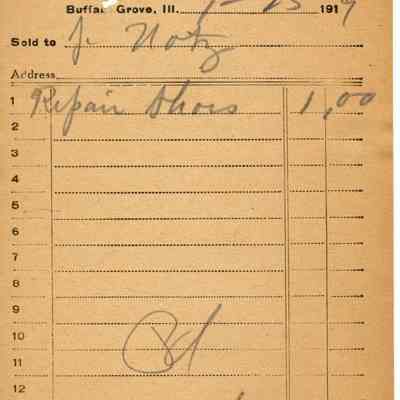 Buffalo Grove, Ill. 1-25 1919
Sold to J. Notz
Address
1 Repair Shoes 1,00
2
3
4
5
6
7
8
9
10 Pd
11
12